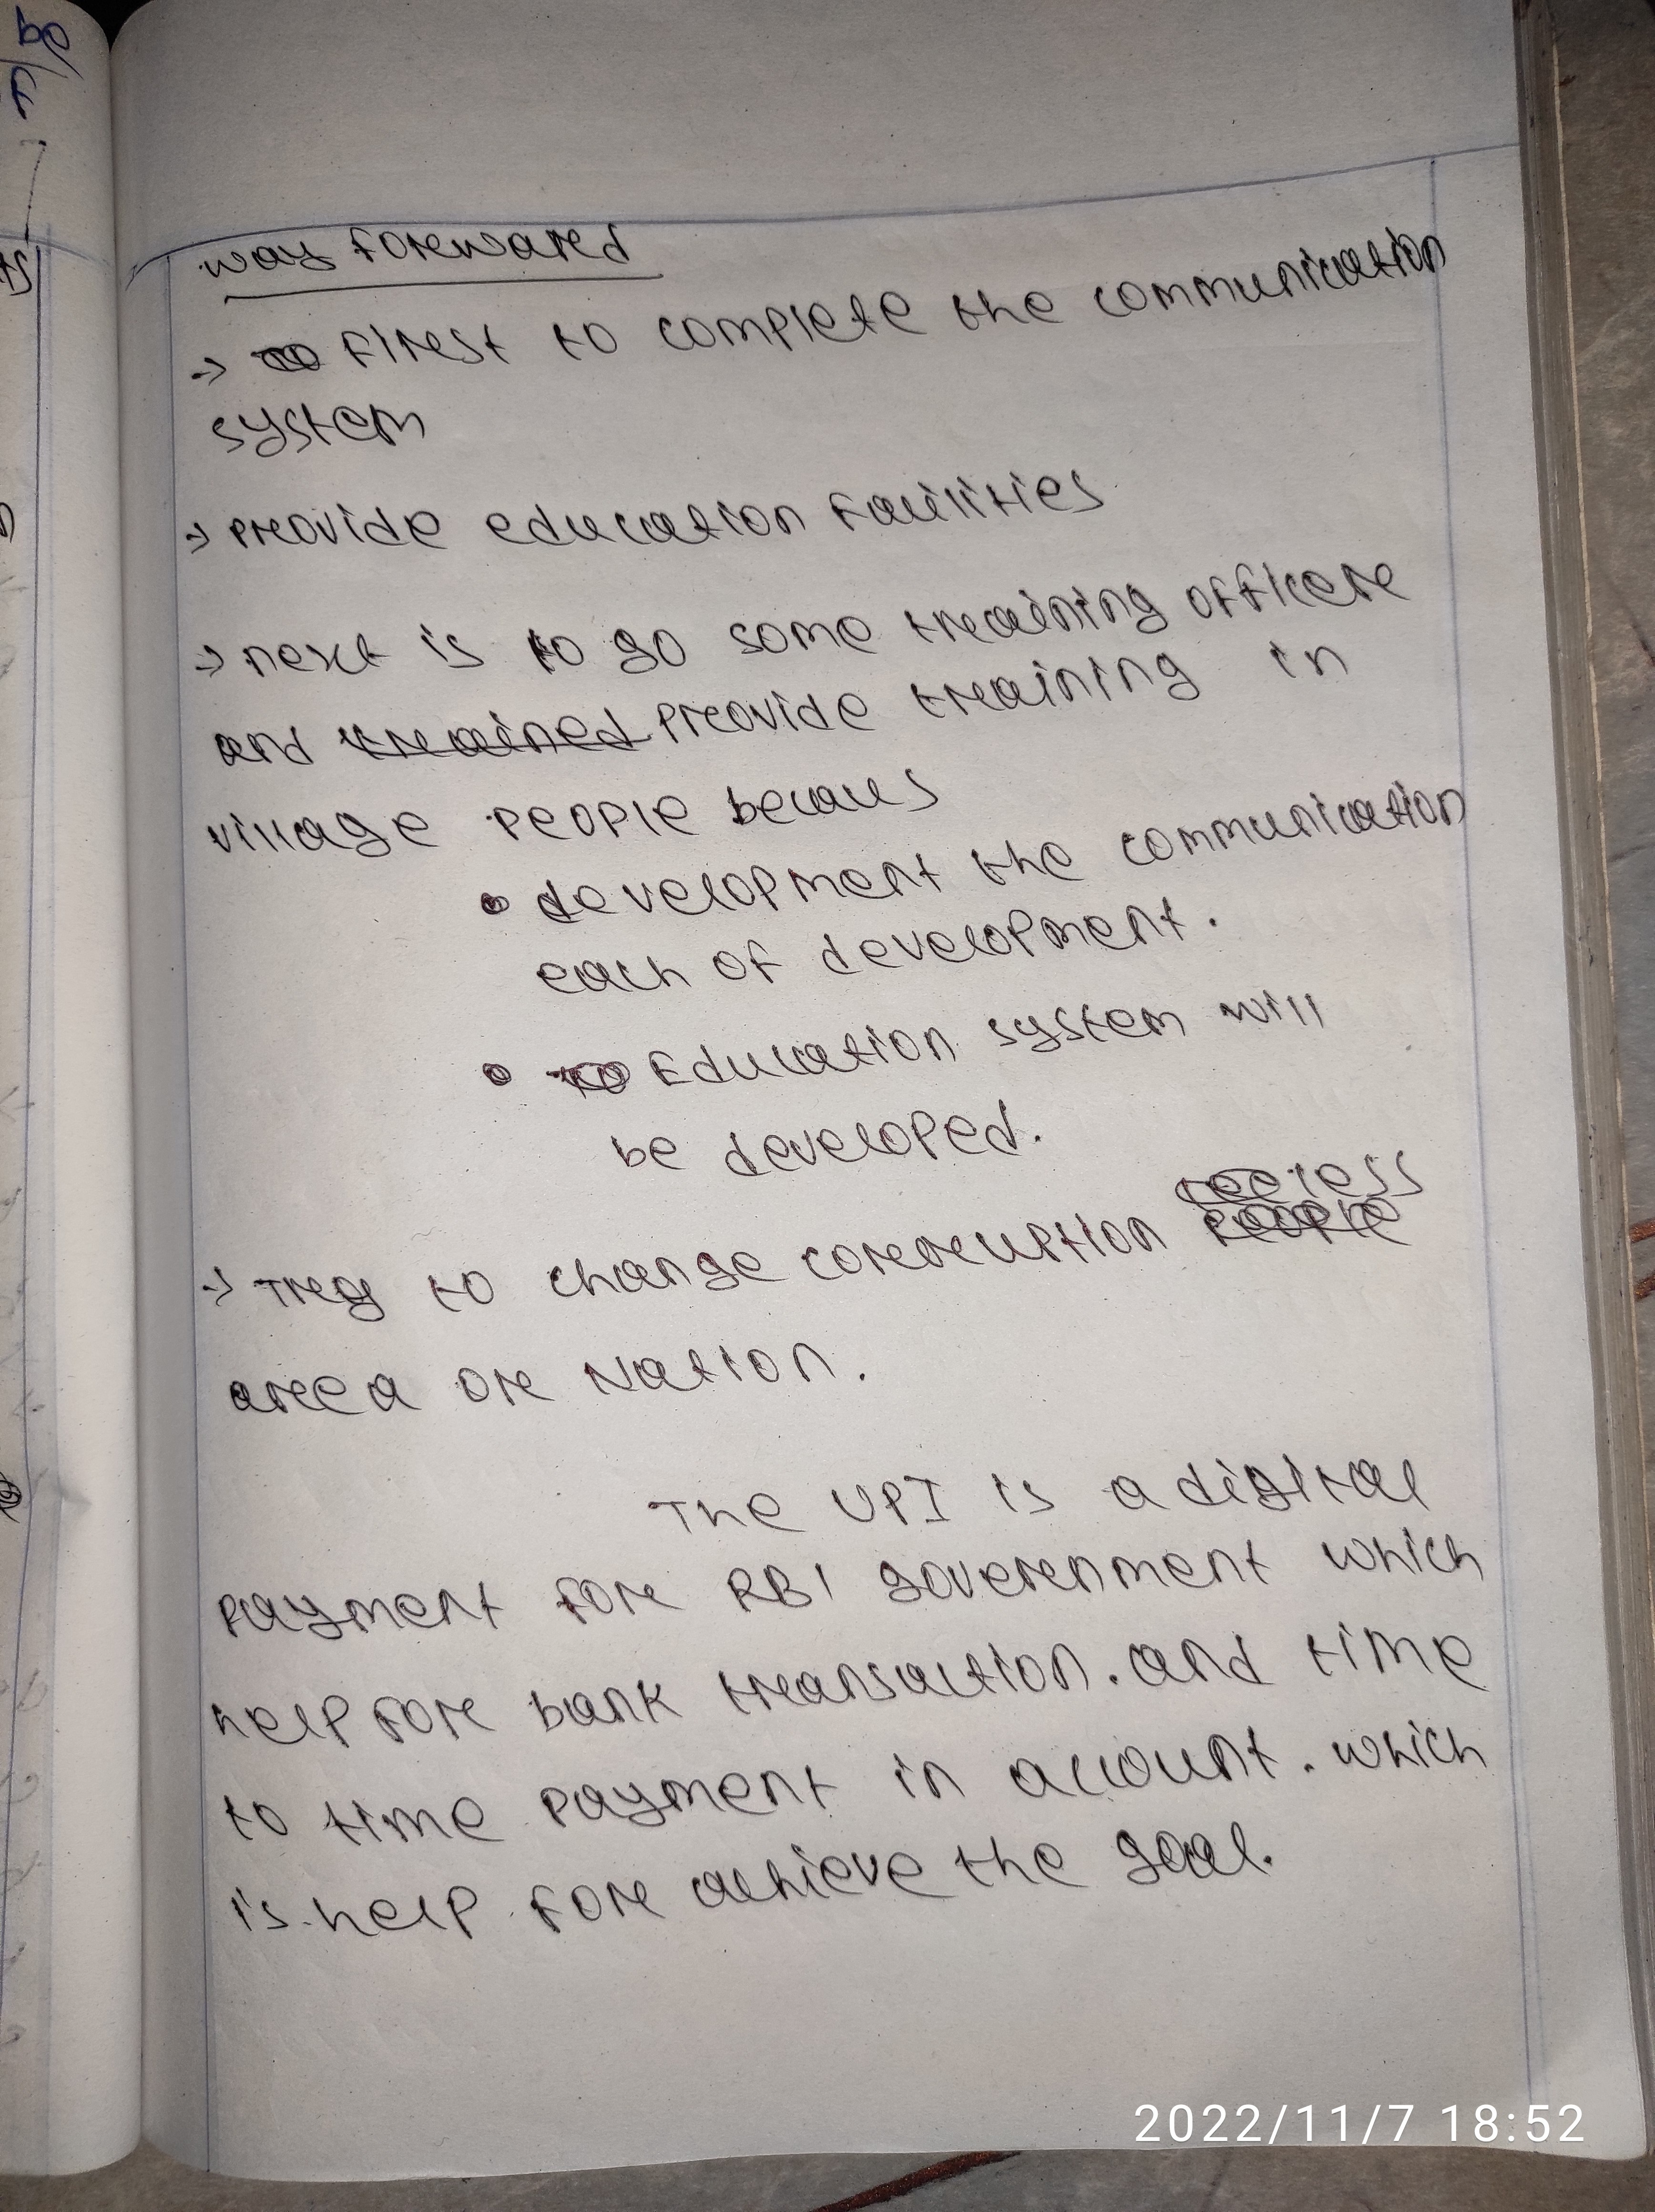 way forward
→ First to complete the communication
system
→ Provide education facilities
→ next is to go some training officer
and trained Provide training in
village People becaus
• development the communication
each of development.
• Education system will
be developed.
→ Try to change corruption People
area or Nation.
The UPI is a digital
payment for RBI government which
help for bank transaction. and time
to time payment in account. which
is help for achieve the goal.
2022/11/7 18:52